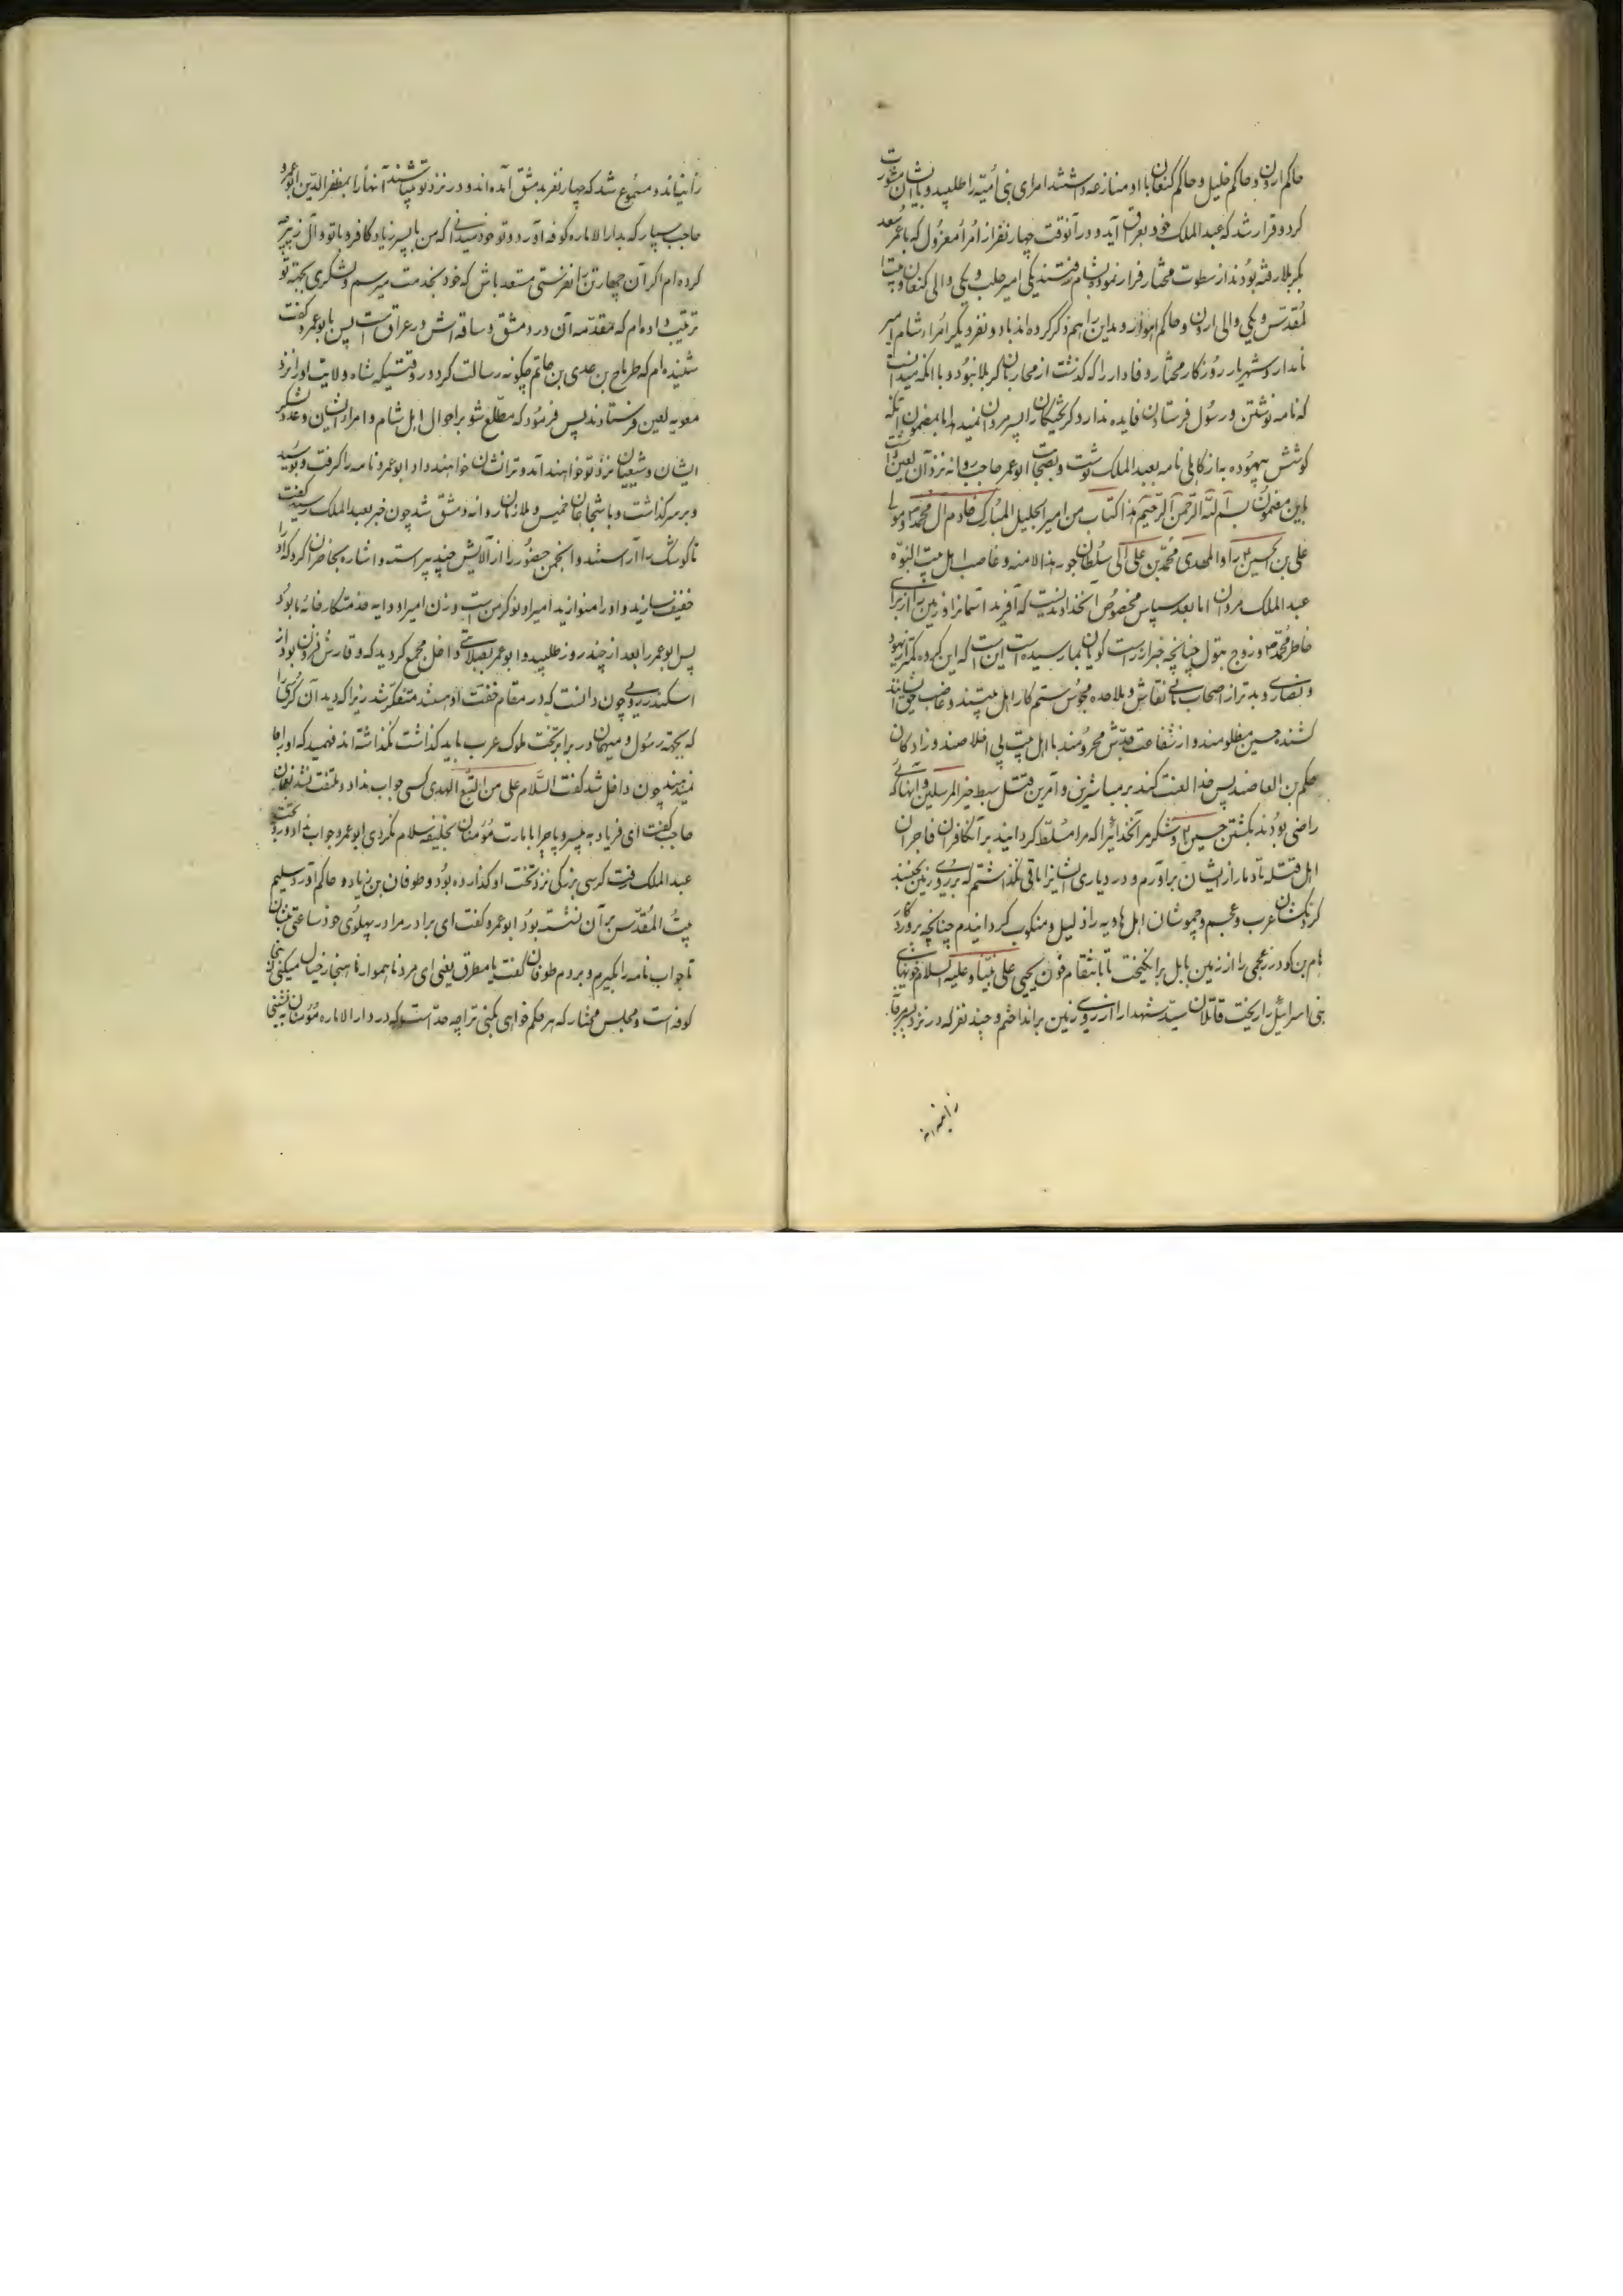 حاکم اردن و حاکم خلیل و حاکم کنعان با او منازعه داشتند امرای بنی امیه را طلبید و با ایشان مشورت
کرد و قرار شد که عبدالملک خود بعراق آید و در آنوقت چهار نفر از امراء معزول که با عمر سعد
بکربلا رفته بودند از سطوت مختار فرار نموده بشام رفتند یکی امیر حلب و یکی والی کنعان و بیت
المقدس و یکی والی اردن و حاکم اهواز و مداین را هم ذکر کرده‌اند با دو نفر دیگر امراء شام امیر
نامدار و شهریار روزگار مختار وفادار را که گذشت از محاربان کربلا نبود و با آنکه میدانست
که نامه نوشتن و رسول فرستادن فایده ندارد گریختگان را پسر مروان نمیدهد اما بمضمون آنکه
کوشش بیهوده به از کاهلی نامه بعبدالملک نوشت و بصحابت ابوعمر حاجب روانه نزد آن لعین داشت
باین مضمون بسم الله الرحمن الرحیم هذا کتاب من امیر الجلیل المبارک خادم آل محمد و مولی
علی بن الحسین و المهدی محمد بن علی الی سلطان جور هذا الامه و غاصب اهل بیت النبوه
عبدالملک مروان اما بعد سپاس مخصوص آنخداوندیست که آفرید آسمانرا و زمین را از برای
خاطر محمد و زوج بتول چنانچه خبر از راست گویان بما رسیده است این است که این گروه بدتر از یهود
و نصاری و بدتر از اصحاب مانی نقاش و ملاحده مجوس ستم کار اهل بیتند و غاصب حق ایشانند
کشنده حسین مظلومند و از شفاعت جدش محرومند با اهل بیت بی اخلاصند و زادگان
حکم بن العاصند پس خدا لعنت کند بر مباشرین و آمرین قتل سبط خیر المرسلین و آنهائی که
راضی بودند بکشتن حسین و شکر مر آنخدائیرا که مرا مسلط گردانید بر آن کافران فاجران
اهل قتله تا دمار از ایشان برآورم و در دیاری ایشانرا باقی نگذاشتم که بر روی زمین بجنبند
گردنکشان عرب و عجم و چموشان اهل هاویه را ذلیل و منکوب گردانیدم چنانچه پروردگار
هام بن گودرز عجمی را از زمین بابل برانگیخت تا بانتقام خون یحیی علی نبینا و علیه السلام خونهای
بنی اسرائیل را ریخت قاتلان سید شهدا را از روی زمین برانداختم و چند نفر که در نزد
را نیاند و مسموع شد که چهار نفر بدمشق آمده‌اند و در نزد تو میباشند آنها را بمظفرالدین ابوعمرو
حاجب بسپار که بدارالاماره کوفه آورد و تو خود میدانی که من با پسر زیاد کافر و با تو و آل زبیر چه
کرده‌ام اگر آن چهار تن را نفرستی مستعد باش که خود بخدمت میرسم و لشکری بجهة تو
ترتیب داده‌ام که مقدمه آن در دمشق و ساقه‌اش در عراق است پس با ابوعمرو گفت
شنیده‌ام که طرماح بن عدی بن حاتم چگونه رسالت کرد در وقتیکه شاه ولایت او را نزد
معویه لعین فرستادند پس فرمود که مطلع شو بر احوال اهل شام و امراء ایشان و عدد لشکر
ایشان و شیعیان نزد تو خواهند آمد و ترا نشان خواهند داد ابوعمرو نامه را گرفت و بوسید
و بر سر گذاشت و با شجاعان خمیس و ملازمان روانه دمشق شد چون خبر بعبدالملک رسید گفت
تا کوشک را آراستند و انجمن حضور را از آلایش چند پیراست و اشاره بحاضران کرد که او را
خفیف سازید و او را منوازید امیر او نوکر من است و زن امیر او دایه خدمتکار خانه ما بود
پس ابوعمر را بعد از چند روز طلبید و ابوعمر بصلابتی داخل مجمع گردید که وقارش فزون بود از
اسکندر رومی چون دانست که در مقام خفت او هستند متفکر شد زیرا که دید آن کرسی را
که بجهة رسول و میهمان در برابر تخت ملوک عرب باید گذاشت نگذاشته‌اند فهمید که او را جا
نمیدهند چون داخل شد گفت السلام علی من اتبع الهدی کسی جواب نداد و ملتفت نشد نعمان
حاجب گفت ای فریاد بی سر و پا چرا با مارت مؤمنان بخلیفه سلام نکردی ابوعمرو جواب نداد و رو بتخت
عبدالملک رفت کرسی بزرگی نزد تخت او گذارده بود و طوفان بن زیاد و حاکم آورد سلیم
بیت المقدس بر آن نشسته بود ابوعمرو گفت ای برادر مرا در پهلوی خود ساعتی بنشان
تا جواب نامه را بگیرم و بروم طوفان گفت یا مطرق یعنی ای مرد ناهموار ناهنجار خیال میکنی اینجا
کوفه است و مجلس مختار که هر حکم خواهی بکنی ترا چه حد است که در دارالاماره مؤمنان بنشینی